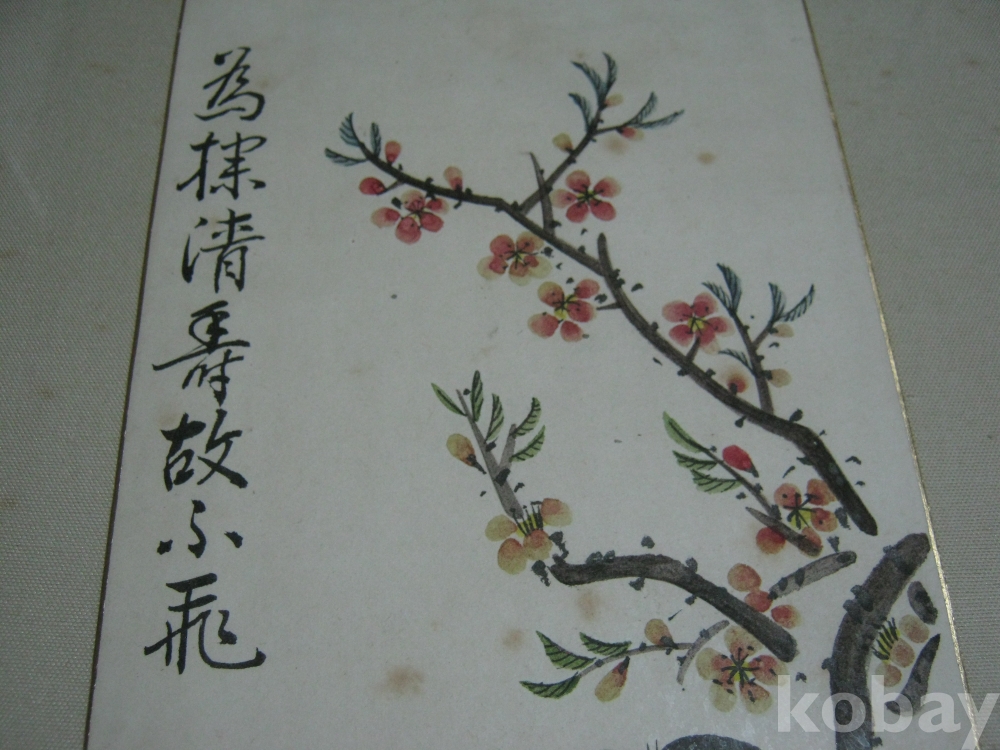 為探清壽故不飛
kobay